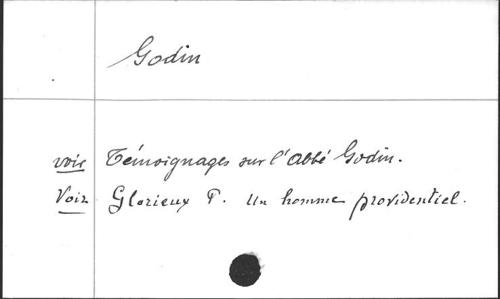 Godin
voir Témoignages sur l'Abbé Godin.
Voir Glorieux P. Un homme providentiel.